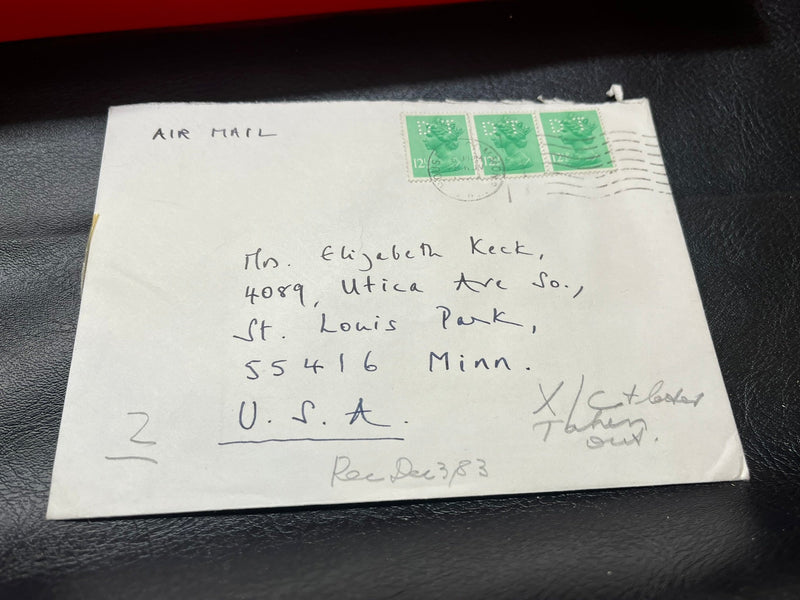 AIR MAIL
12½ 12½ 12½
Mrs. Elizabeth Keck,
4089, Utica Ave So.,
St. Louis Park,
55416 Minn.
U.S.A.
2
X/C + letter
Taken
out.
Rec Dec 3/83